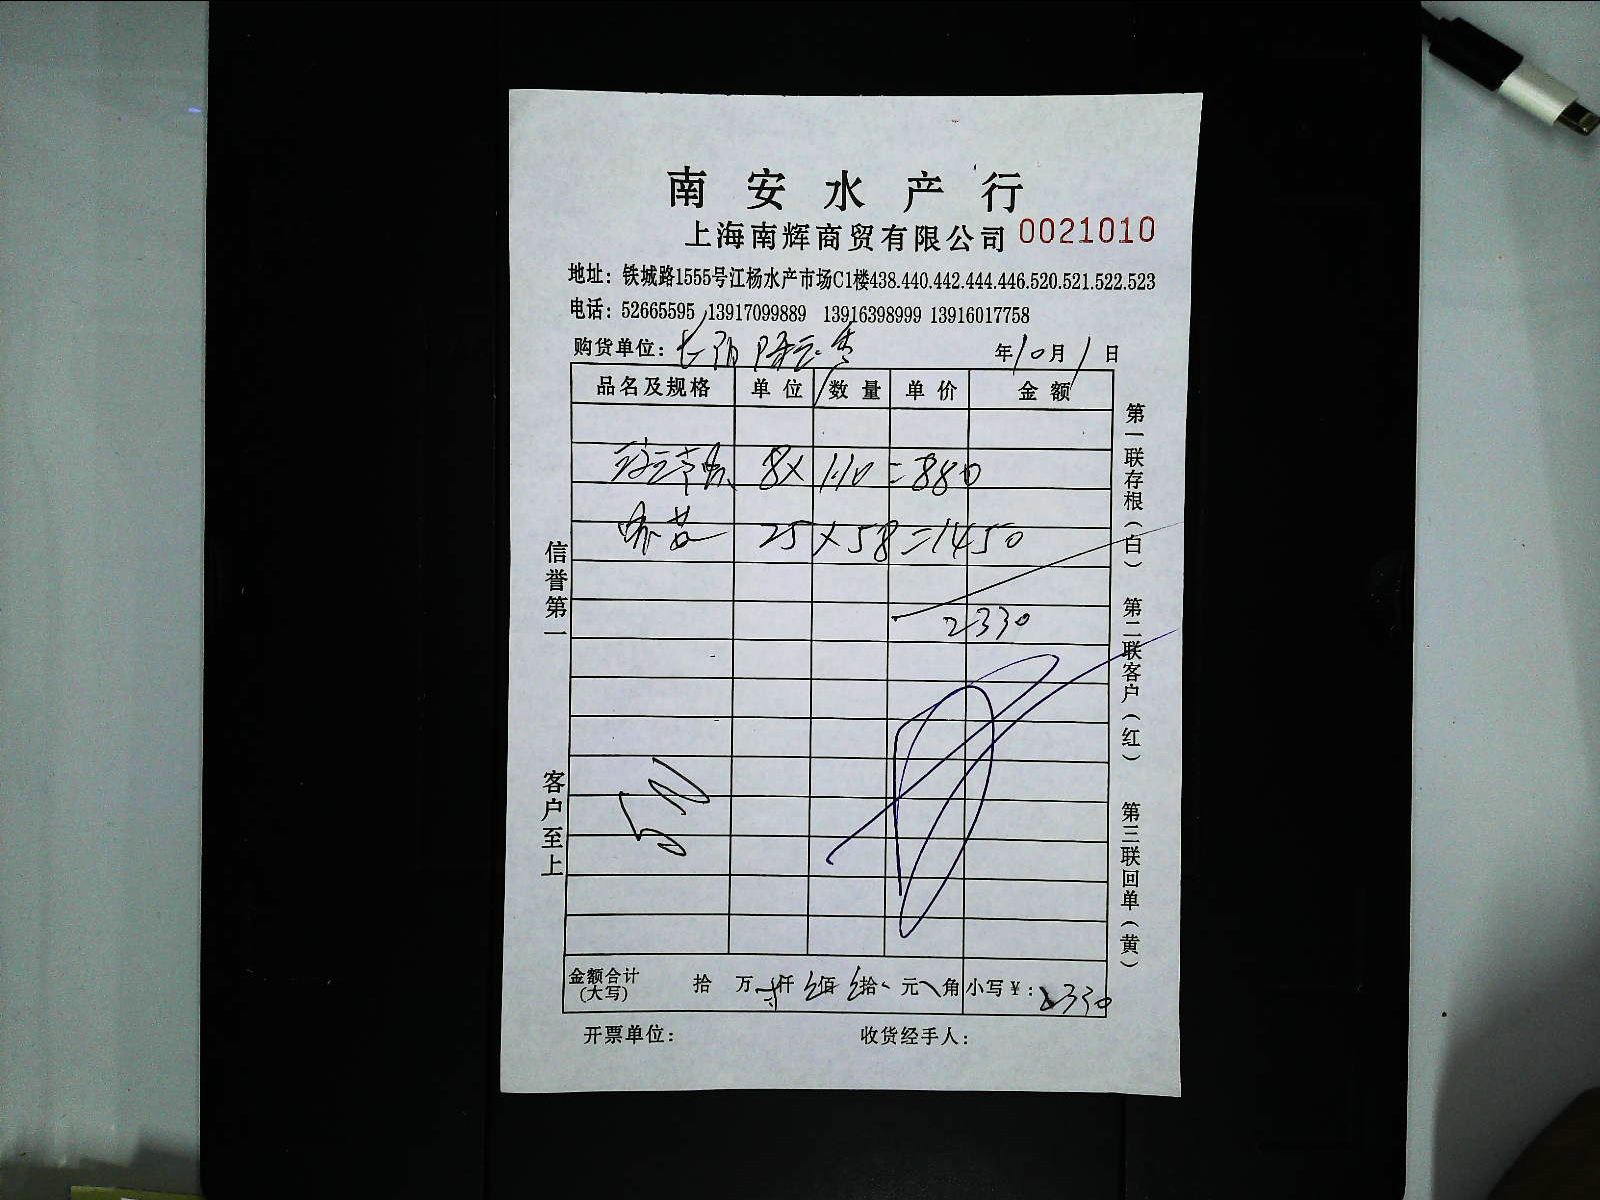 南安水产行
上海南辉商贸有限公司 0021010
地址：铁城路1555号江杨水产市场C1楼438.440.442.444.446.520.521.522.523
电话：52665595 13917099889 13916398999 13916017758
购货单位： 年10月1日
品名及规格 单位 数量 单价 金额
8×110=880
25×58=1450
2330
金额合计(大写) 拾 万 仟 佰 拾 元 角 小写￥：2330
开票单位： 收货经手人：
信誉第一
客户至上
第一联存根(白)
第二联客户(红)
第三联回单(黄)